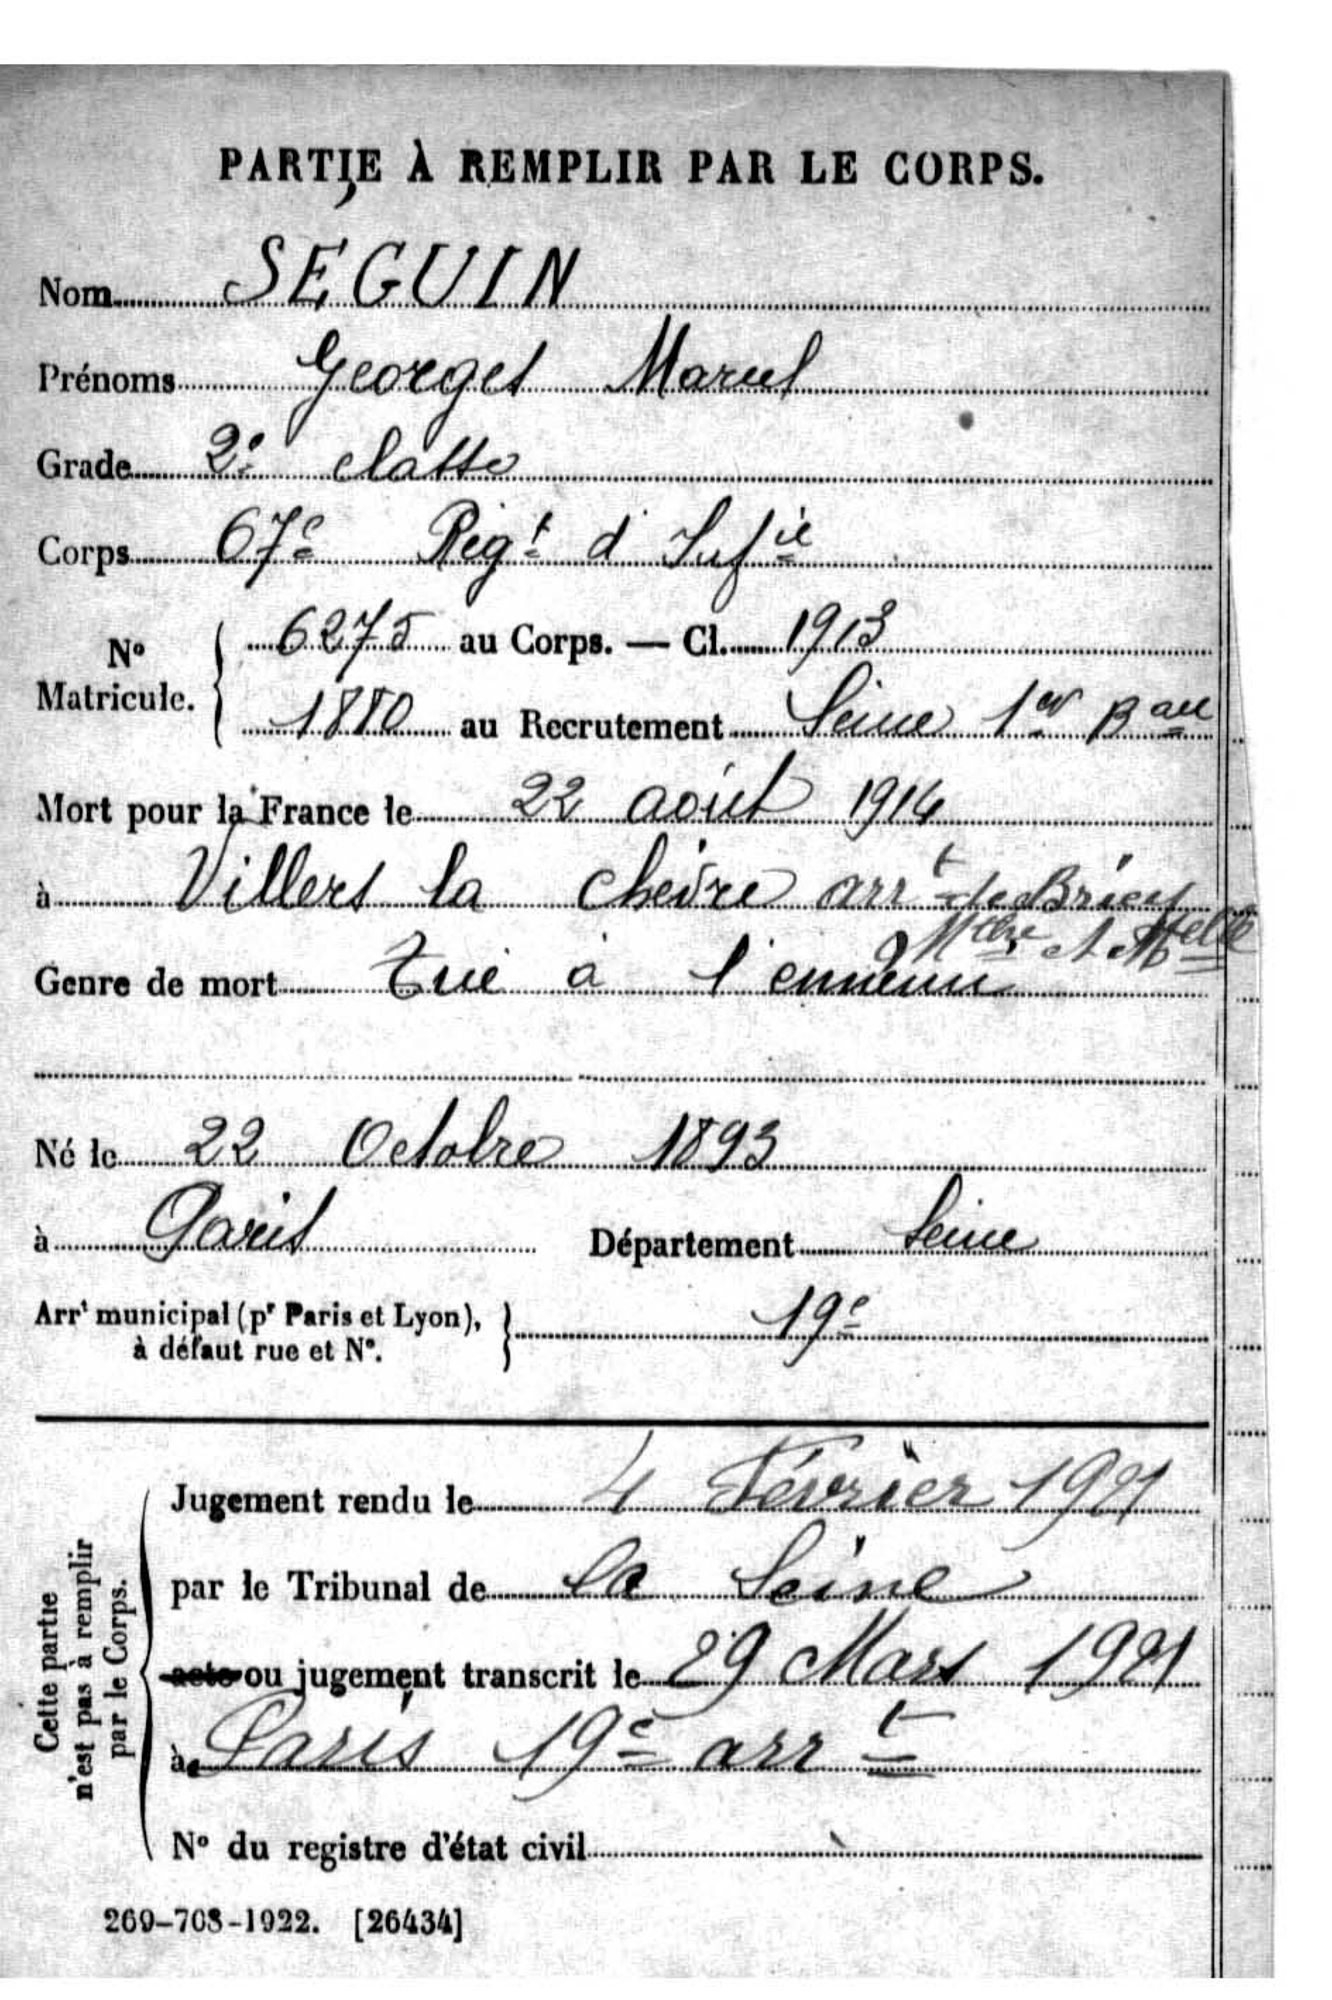 PARTIE À REMPLIR PAR LE CORPS.
Nom SEGUIN
Prénoms Georges Marcel
Grade 2e classe
Corps 67e Régt d'Infie
No Matricule. 6275 au Corps. — Cl. 1913
1880 au Recrutement Seine 1er Bau
Mort pour la France le 22 août 1914
à Villers la Chèvre arrt de Briey
Mthe et Melle
Genre de mort Tué à l'ennemi
Né le 22 Octobre 1893
à Paris Département Seine
Arrt municipal (pr Paris et Lyon), 19e
à défaut rue et No.
Cette partie
n'est pas à remplir
par le Corps.
Jugement rendu le 4 Février 1921
par le Tribunal de la Seine
acte ou jugement transcrit le 29 Mars 1921
à Paris 19e arrt
No du registre d'état civil
269-708-1922. [26434]